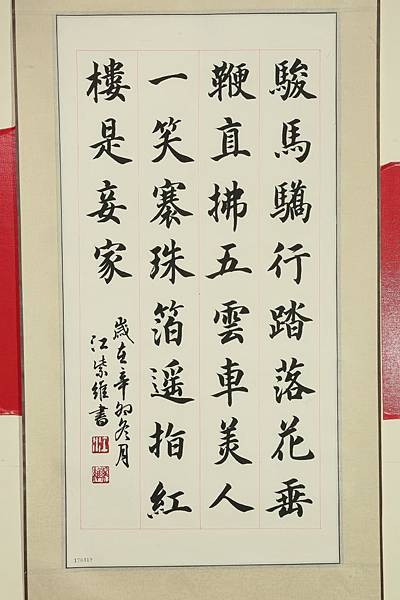 駿馬驕行踏落花垂
鞭直拂五雲車美人
一笑褰珠箔遥指紅
樓是妾家
歲在辛卯冬月
江紫維書